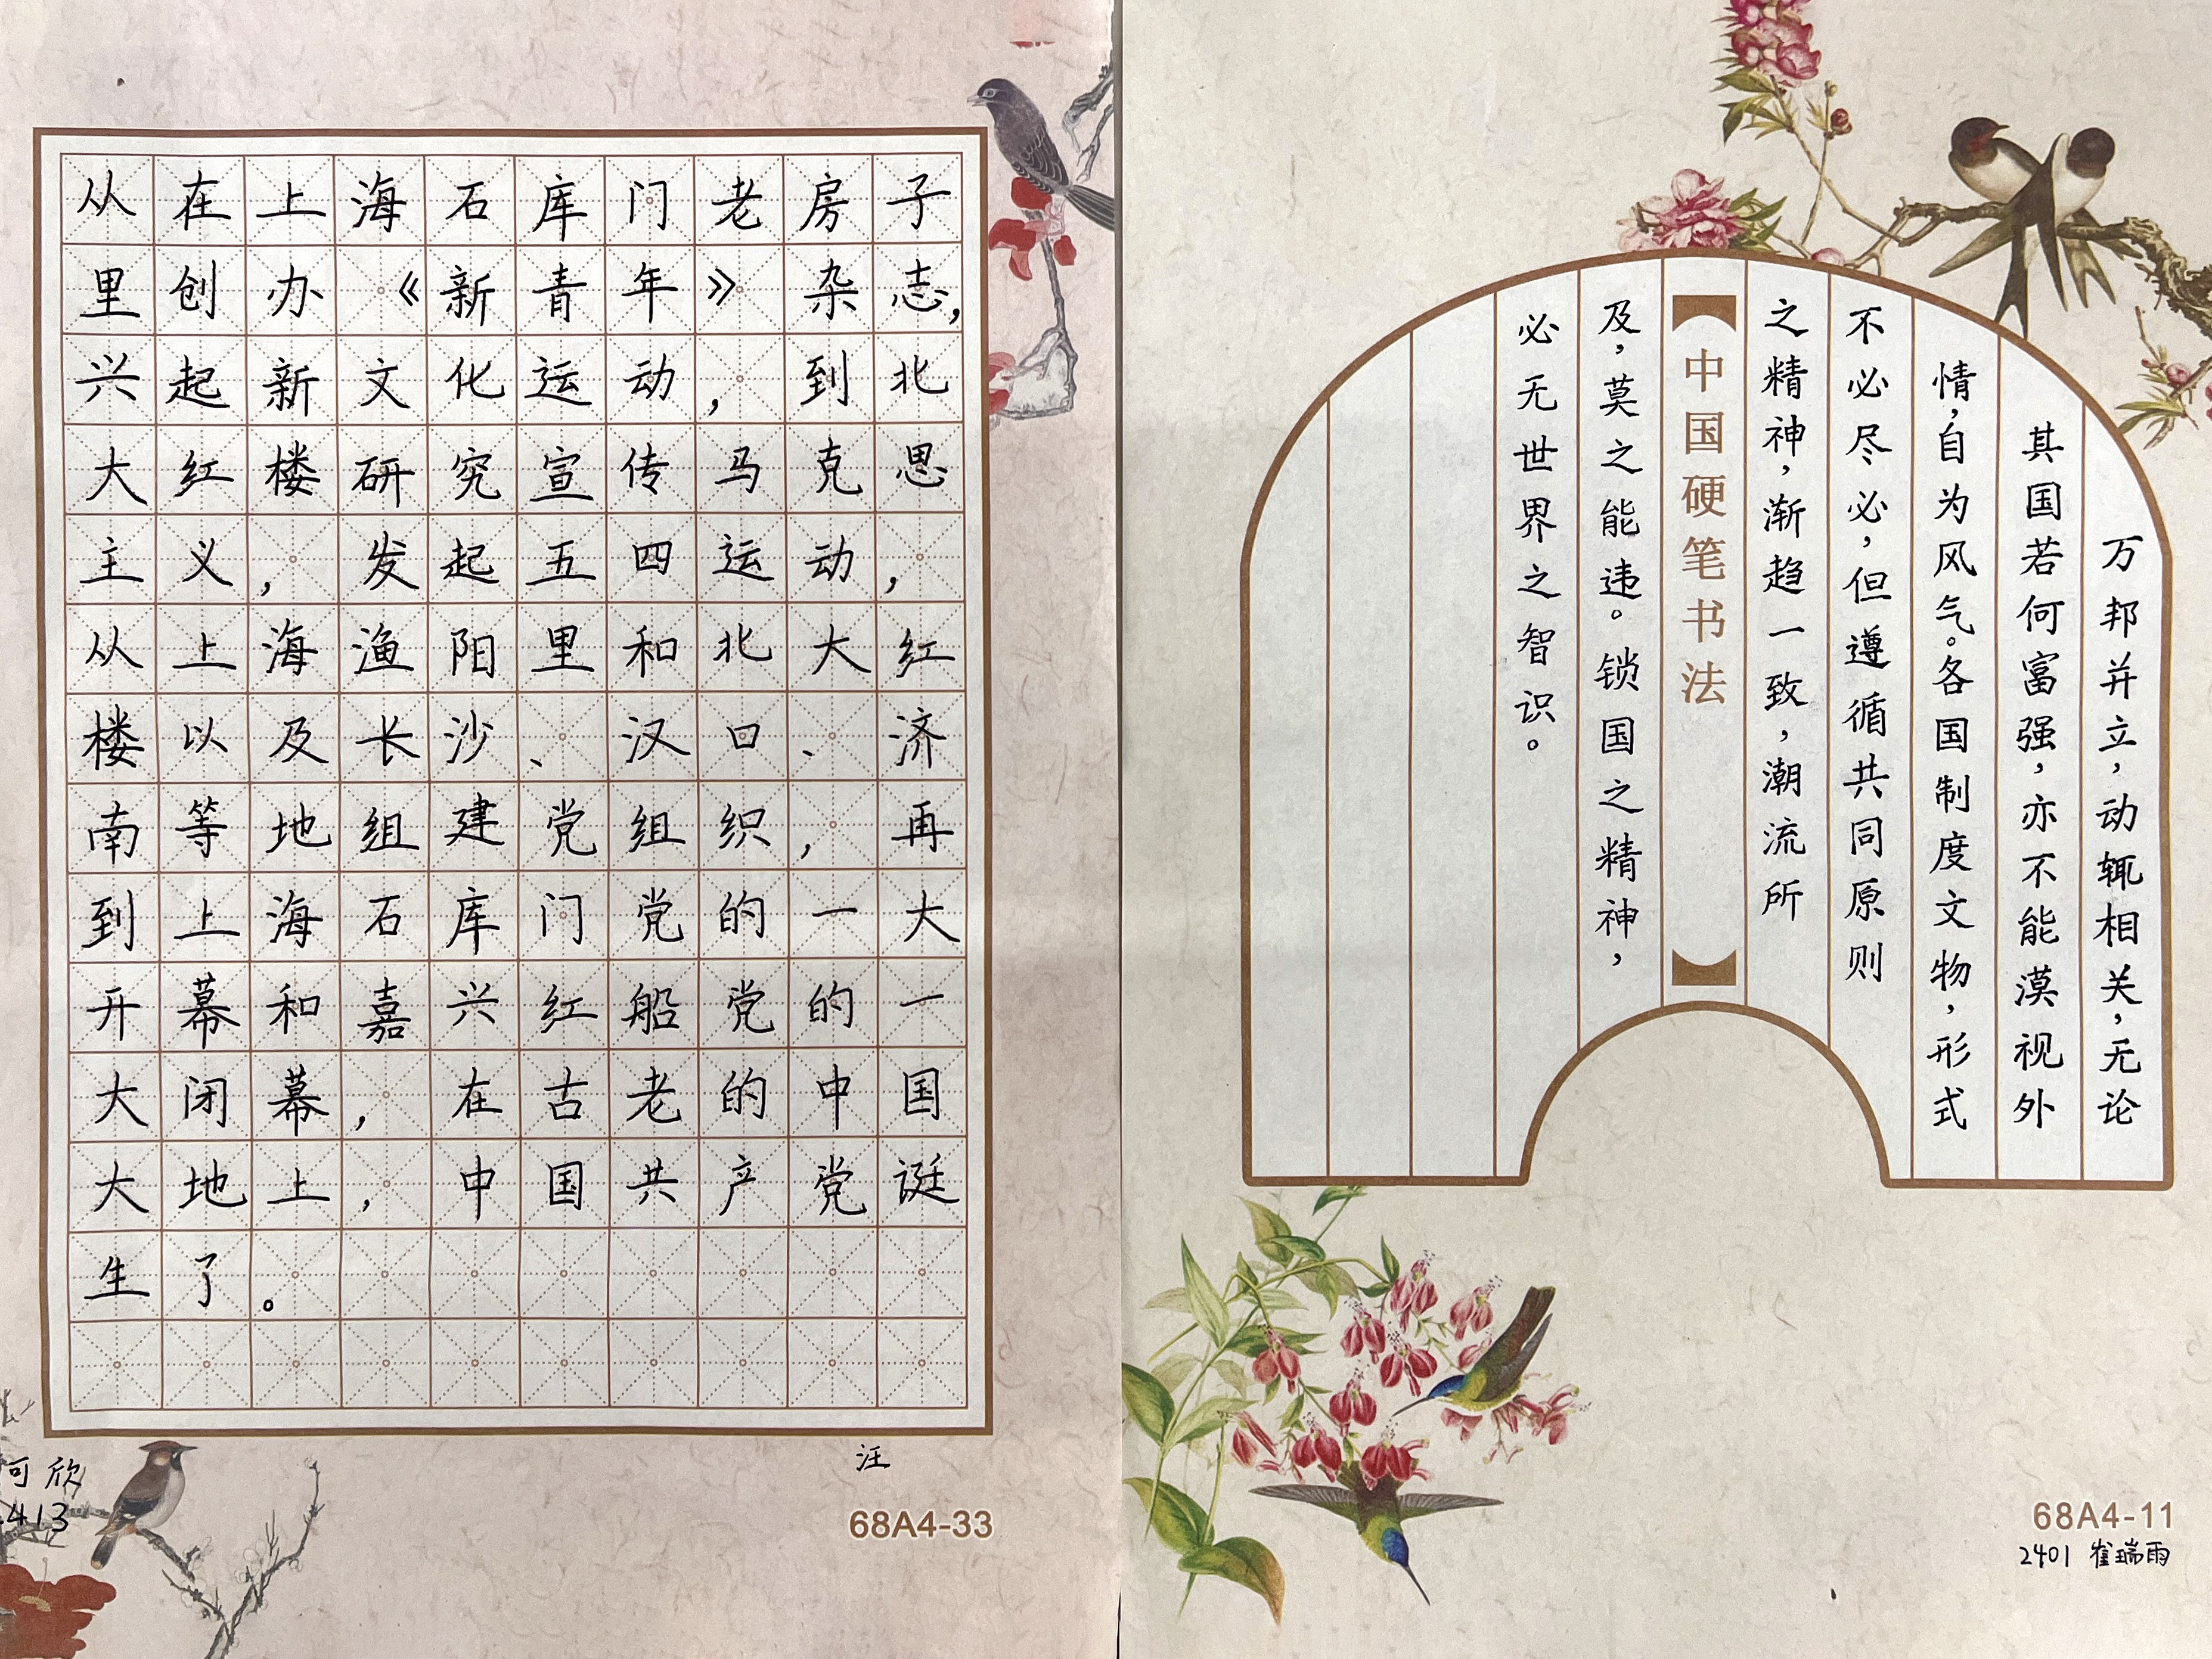 从在上海石库门老房子
里创办《新青年》杂志，
兴起新文化运动，到北
大红楼研究宣传马克思
主义，发起五四运动，
从上海渔阳里和北大红
楼以及长沙、汉口、济
南等地组建党组织，再
到上海石库门党的一大
开幕和嘉兴红船党的一
大闭幕，在古老的中国
大地上，中国共产党诞
生了。
汪
可欣
413
68A4-33
万邦并立，动辄相关，无论
其国若何富强，亦不能漠视外
情，自为风气。各国制度文物，形式
不必尽必，但遵循共同原则
之精神，渐趋一致，潮流所
中国硬笔书法
及，莫之能违。锁国之精神，
必无世界之智识。
68A4-11
2401 崔瑞雨